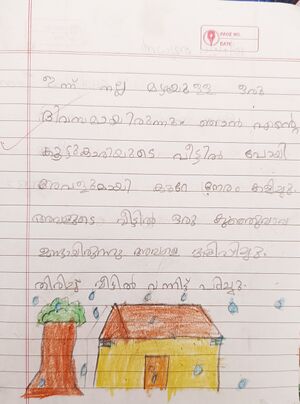 PAGE NO.
DATE:
ഇന്ന് നല്ല മഴയുള്ള ഒരു
ദിവസമായിരുന്നു ഞാൻ എന്റെ
കൂട്ടുകാരിയുടെ വീട്ടിൽ പോയി
അവളുമായി കുറേ നേരം കളിച്ചു
അവളുടെ വീട്ടിൽ ഒരു
ഉണ്ടായിരുന്നു അവളെ
തിരിച്ച് വീട്ടിൽ വന്നിട്ട് പഠിച്ചു.